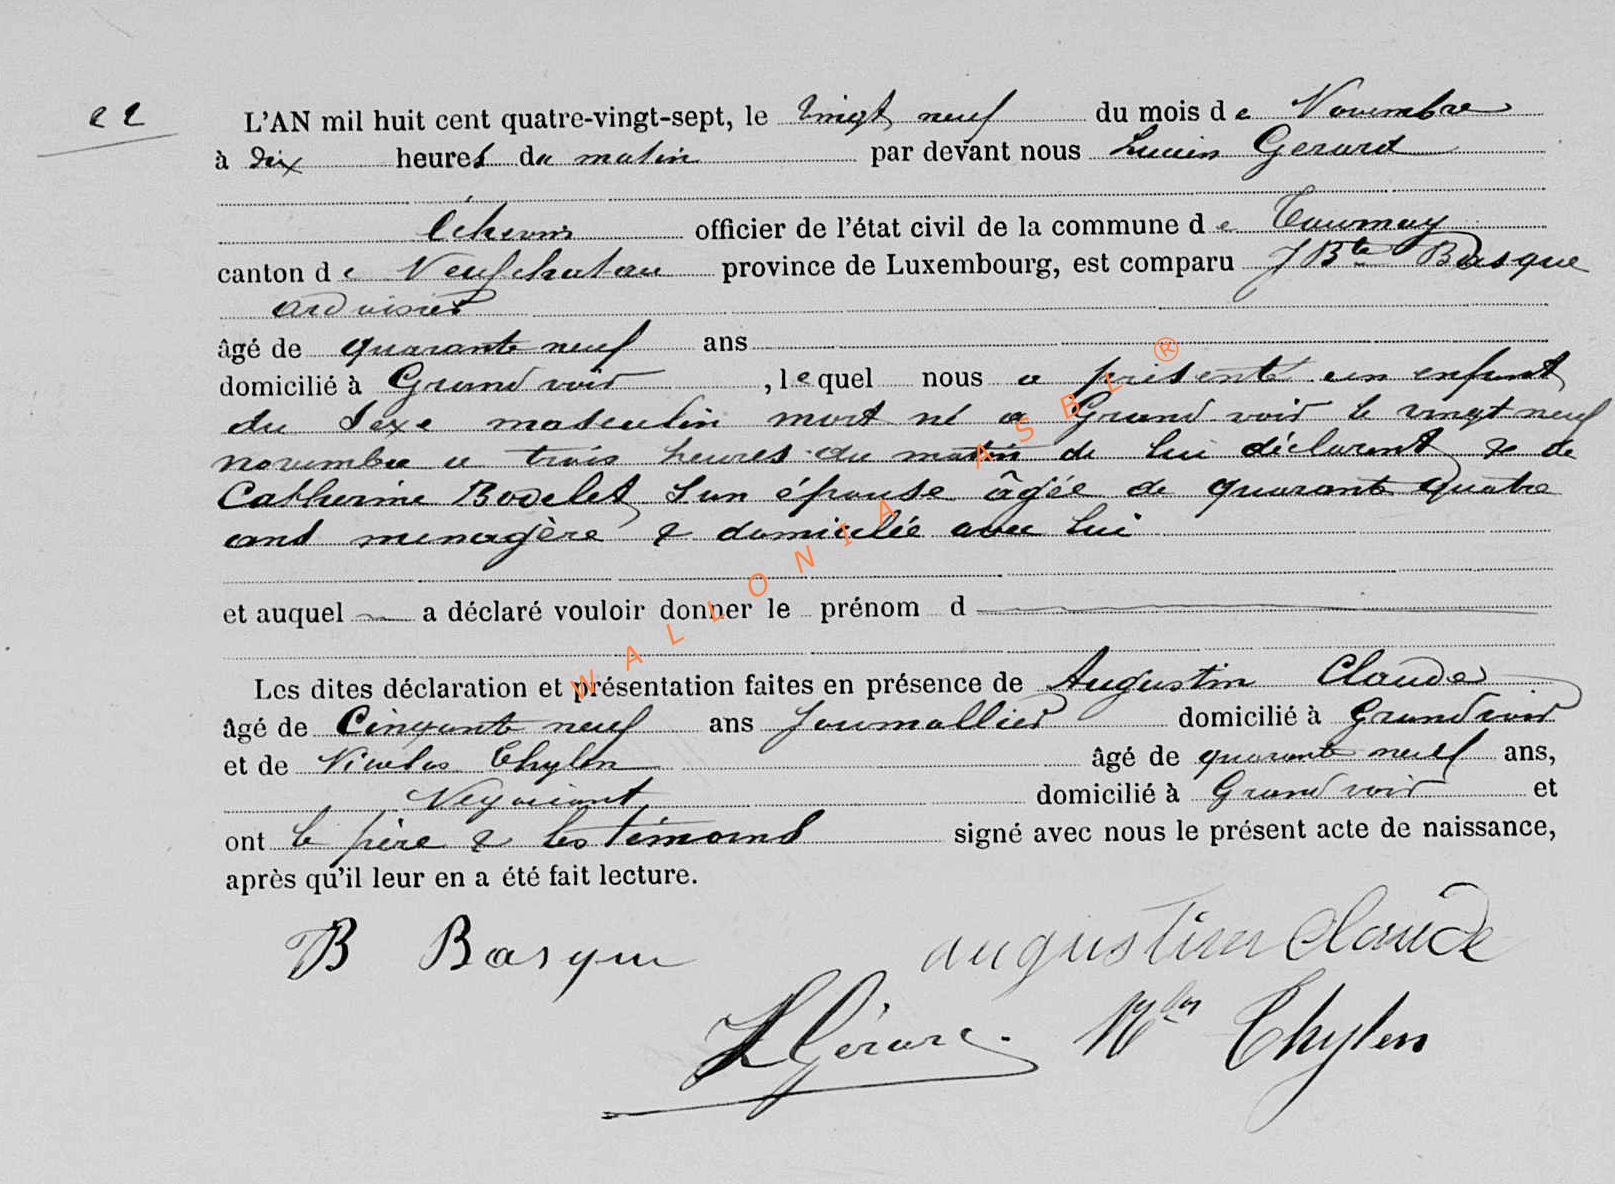 22
L'AN mil huit cent quatre-vingt-sept, le vingt neuf du mois de Novembre
à dix heures du matin par devant nous Lucien Gerard
échevin officier de l'état civil de la commune de Tournay
canton de Neufchateau province de Luxembourg, est comparu J Bte Basque
ardoisier
âgé de quarante neuf ans
domicilié à Grand voir, lequel nous a présenté un enfant
du sexe masculin mort né a Grand voir le vingt neuf
novembre a trois heures du matin de lui déclarant & de
Catherine Bodelet son épouse âgée de quarante quatre
ans menagère & domiciliée avec lui
et auquel a déclaré vouloir donner le prénom d
Les dites déclaration et présentation faites en présence de Augustin Claude
âgé de Cinquante neuf ans Journallier domicilié à Grandvoir
et de Nicolas Thylen âgé de quarante neuf ans,
Negociant domicilié à Grand voir et
ont le père & les témoins signé avec nous le présent acte de naissance,
après qu'il leur en a été fait lecture.
JB Basque augustin Claude
L Gérard Nlas Thylen
WALLONIA ASBL ®